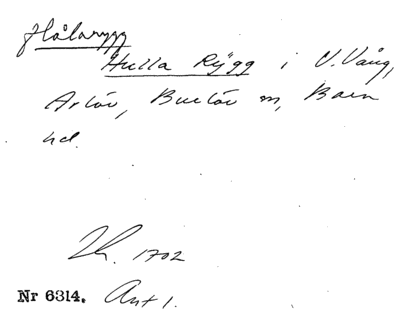 Hålarygg
Hulla Rÿgg i V. Vång,
Arlöv, Burlöv m, Bara
hd.
1702
Nr 6314. Ant 1.